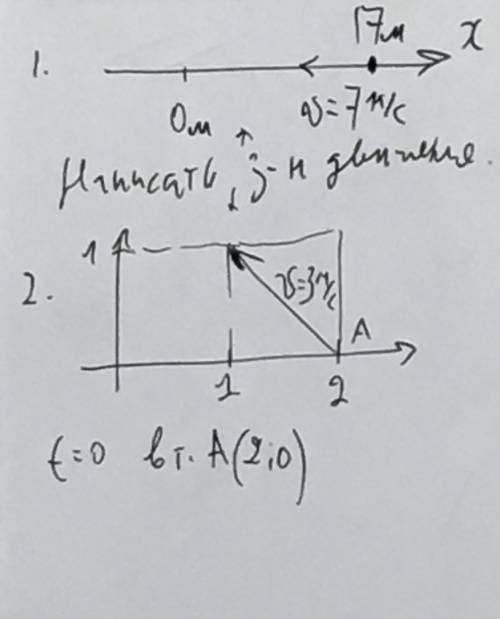 17м
x
1.
0м
v=7м/с
Написать з-н движения.
1
2.
v=3м/с
A
1 2
t=0 в т. A(2;0)